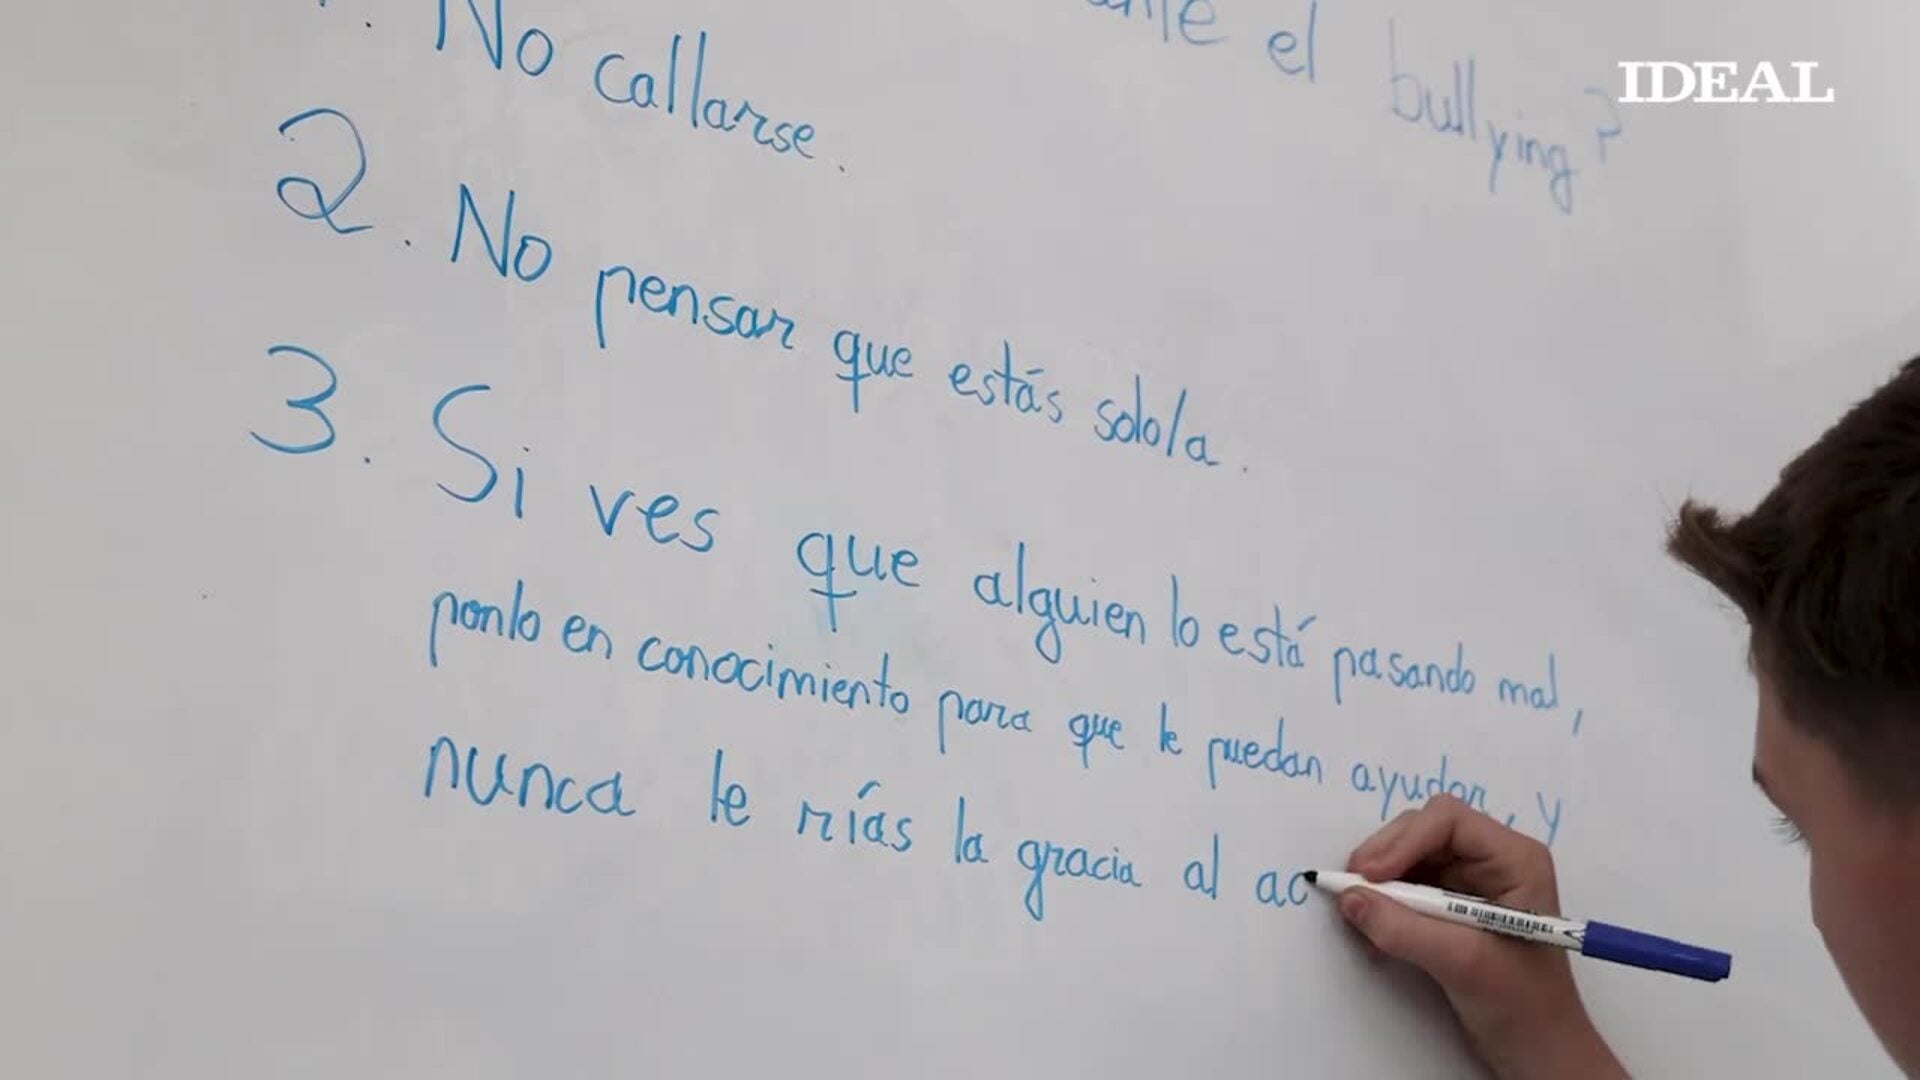 el bullying?
IDEAL
No callarse.
2. No pensar que estás solo/a.
3. Si ves que alguien lo está pasando mal,
ponlo en conocimiento para que le puedan ayudar, y
nunca le rías la gracia al ac